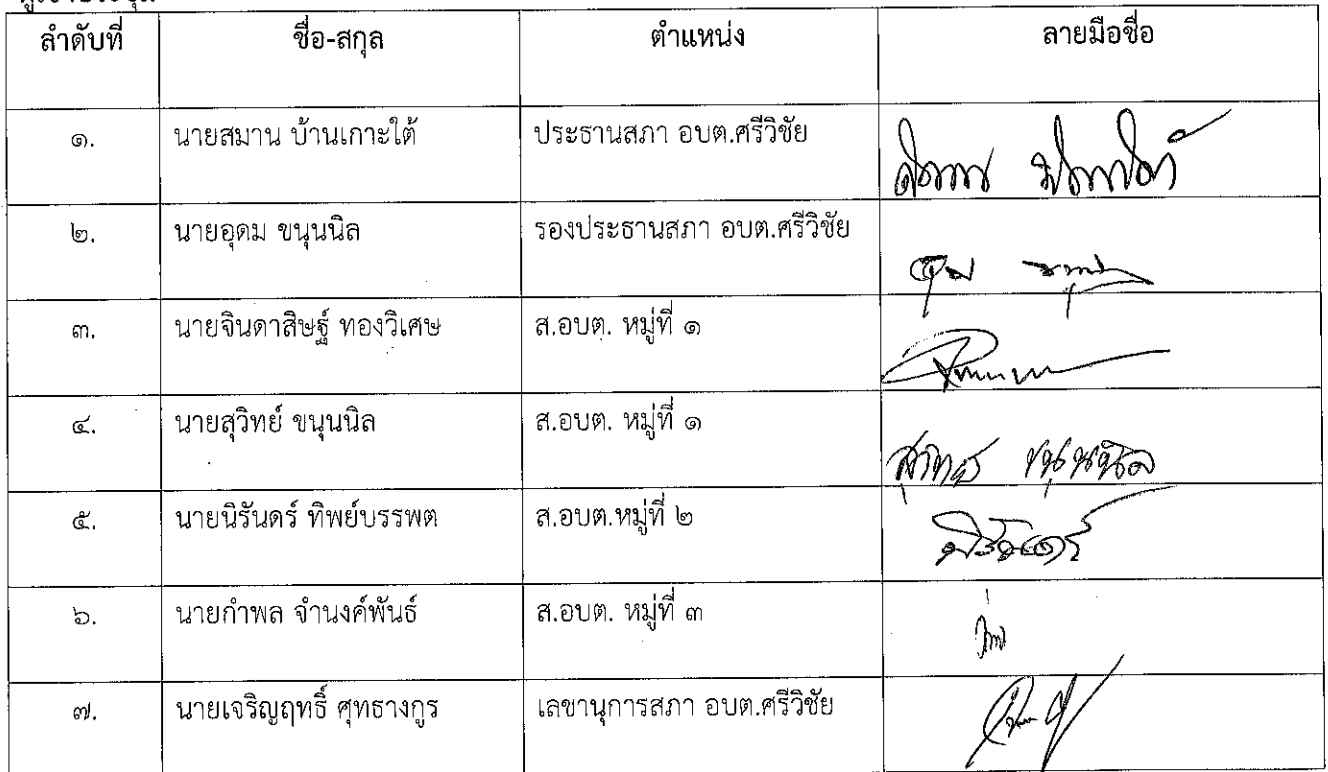 ลำดับที่ ชื่อ-สกุล ตำแหน่ง ลายมือชื่อ
๑. นายสมาน บ้านเกาะใต้ ประธานสภา อบต.ศรีวิชัย
๒. นายอุดม ขนุนนิล รองประธานสภา อบต.ศรีวิชัย
๓. นายจินดาสิษฐ์ ทองวิเศษ ส.อบต. หมู่ที่ ๑
๔. นายสุวิทย์ ขนุนนิล ส.อบต. หมู่ที่ ๑ สุวิทย์ ขนุนนิล
๕. นายนิรันดร์ ทิพย์บรรพต ส.อบต.หมู่ที่ ๒ นิรันดร์
๖. นายกำพล จำนงค์พันธ์ ส.อบต. หมู่ที่ ๓
๗. นายเจริญฤทธิ์ ศุทธางกูร เลขานุการสภา อบต.ศรีวิชัย